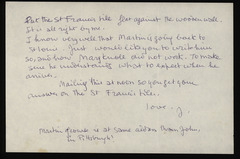 Put the St Francis tile flat against the wooden wall.
It is all right by me.
I know very well that Martin is going back to
St Louis. Just would like you to write him
so, and how Maryknoll did not work. To make
sure he understands what to expect when he
arrives.
Mailing this at noon so you get your
answer on the St Francis tile.
love. J.
Martin George is at same address Brown John,
in Pittsburgh!